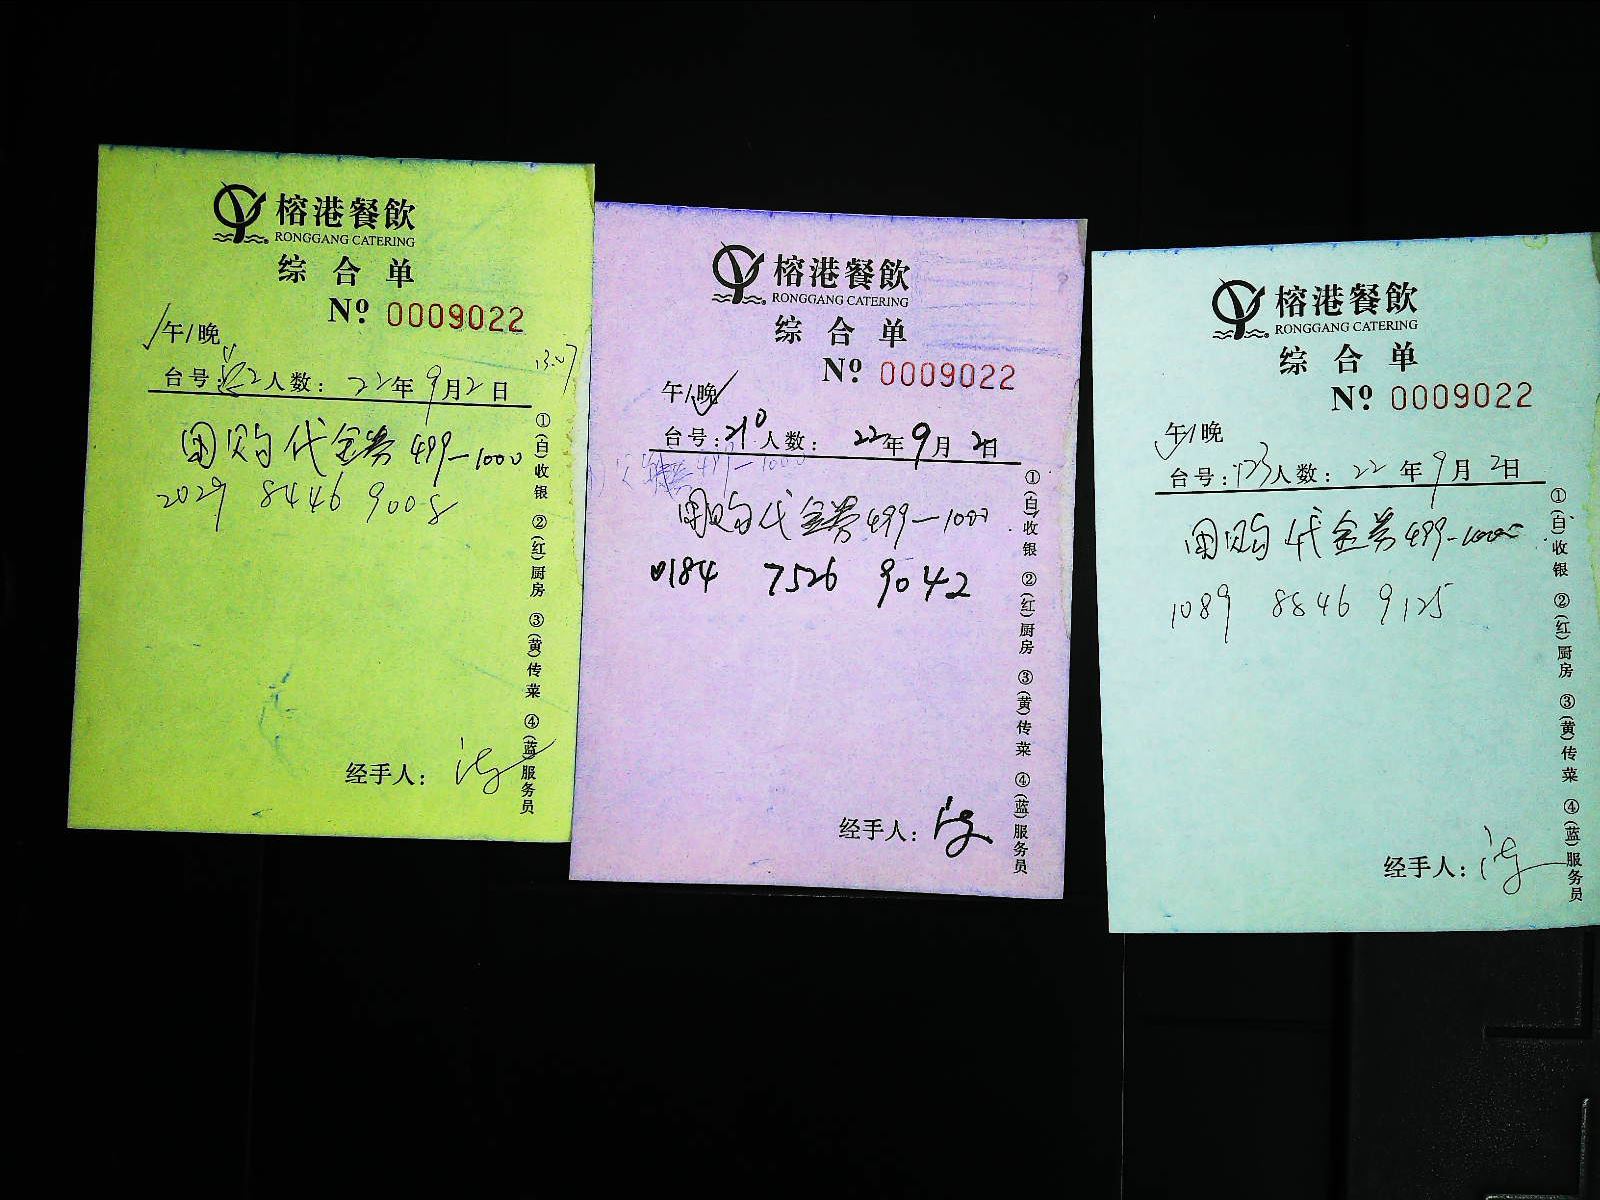 榕港餐飲
RONGGANG CATERING
综合单
Nº 0009022
午/晚
13:07
台号: 人数: 22年9月2日
团购代金券 499-1000
2029 8446 9008
①(白)收银 ②(红)厨房 ③(黄)传菜 ④(蓝)服务员
经手人:
榕港餐飲
RONGGANG CATERING
综合单
Nº 0009022
午/晚
台号: 210 人数: 22年9月2日
团购代金券 499-1000
0184 7526 9042
①(白)收银 ②(红)厨房 ③(黄)传菜 ④(蓝)服务员
经手人:
榕港餐飲
RONGGANG CATERING
综合单
Nº 0009022
午/晚
台号: 123 人数: 22年9月2日
团购代金券 499-1000
1089 8846 9125
①(白)收银 ②(红)厨房 ③(黄)传菜 ④(蓝)服务员
经手人: